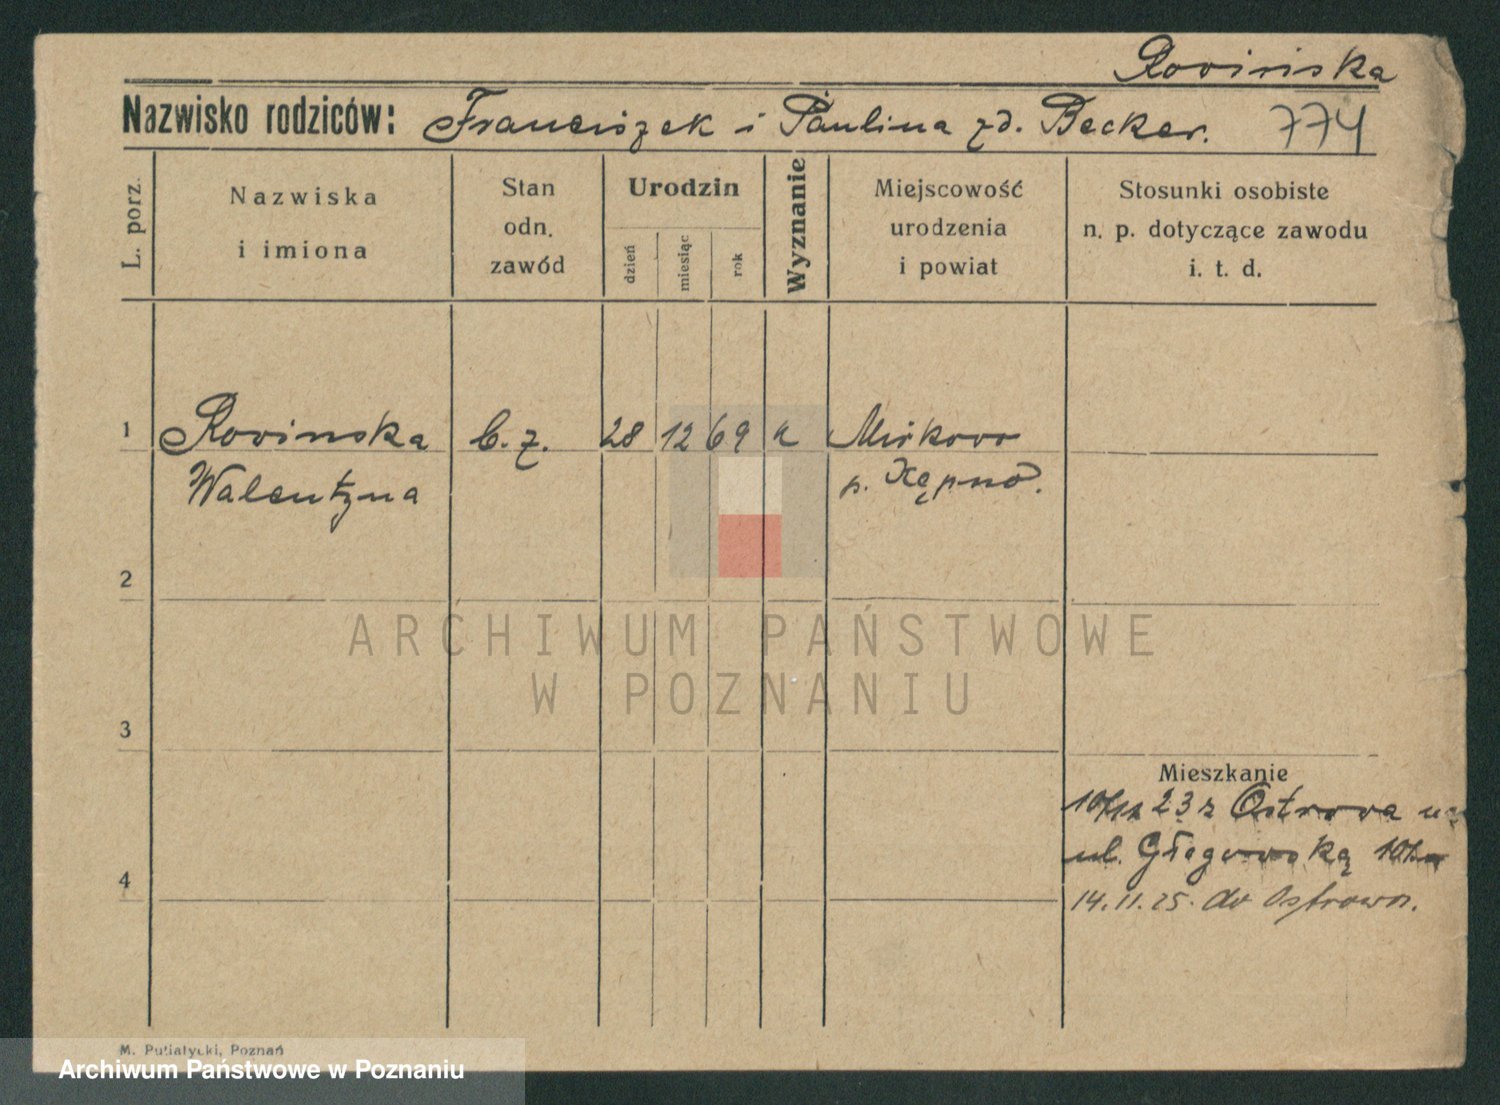 Rovinska
Nazwisko rodziców: Franciszek i Paulina zd. Becker. 774
L. porz.
Nazwiska
i imiona
Stan
odn.
zawód
Urodzin
dzień
miesiąc
rok
Wyznanie
Miejscowość
urodzenia
i powiat
Stosunki osobiste
n. p. dotyczące zawodu
i. t. d.
1 Rovinska b. z. 28 12 69 k Mirkovo
Walentyna p. Kępno.
2
ARCHIWUM PAŃSTWOWE
W POZNANIU
3
Mieszkanie
10/12 23 z Ostrova na
ul. Głogowską
4
14.11.25. do Ostrowa.
M. Putiatycki, Poznań
Archiwum Państwowe w Poznaniu